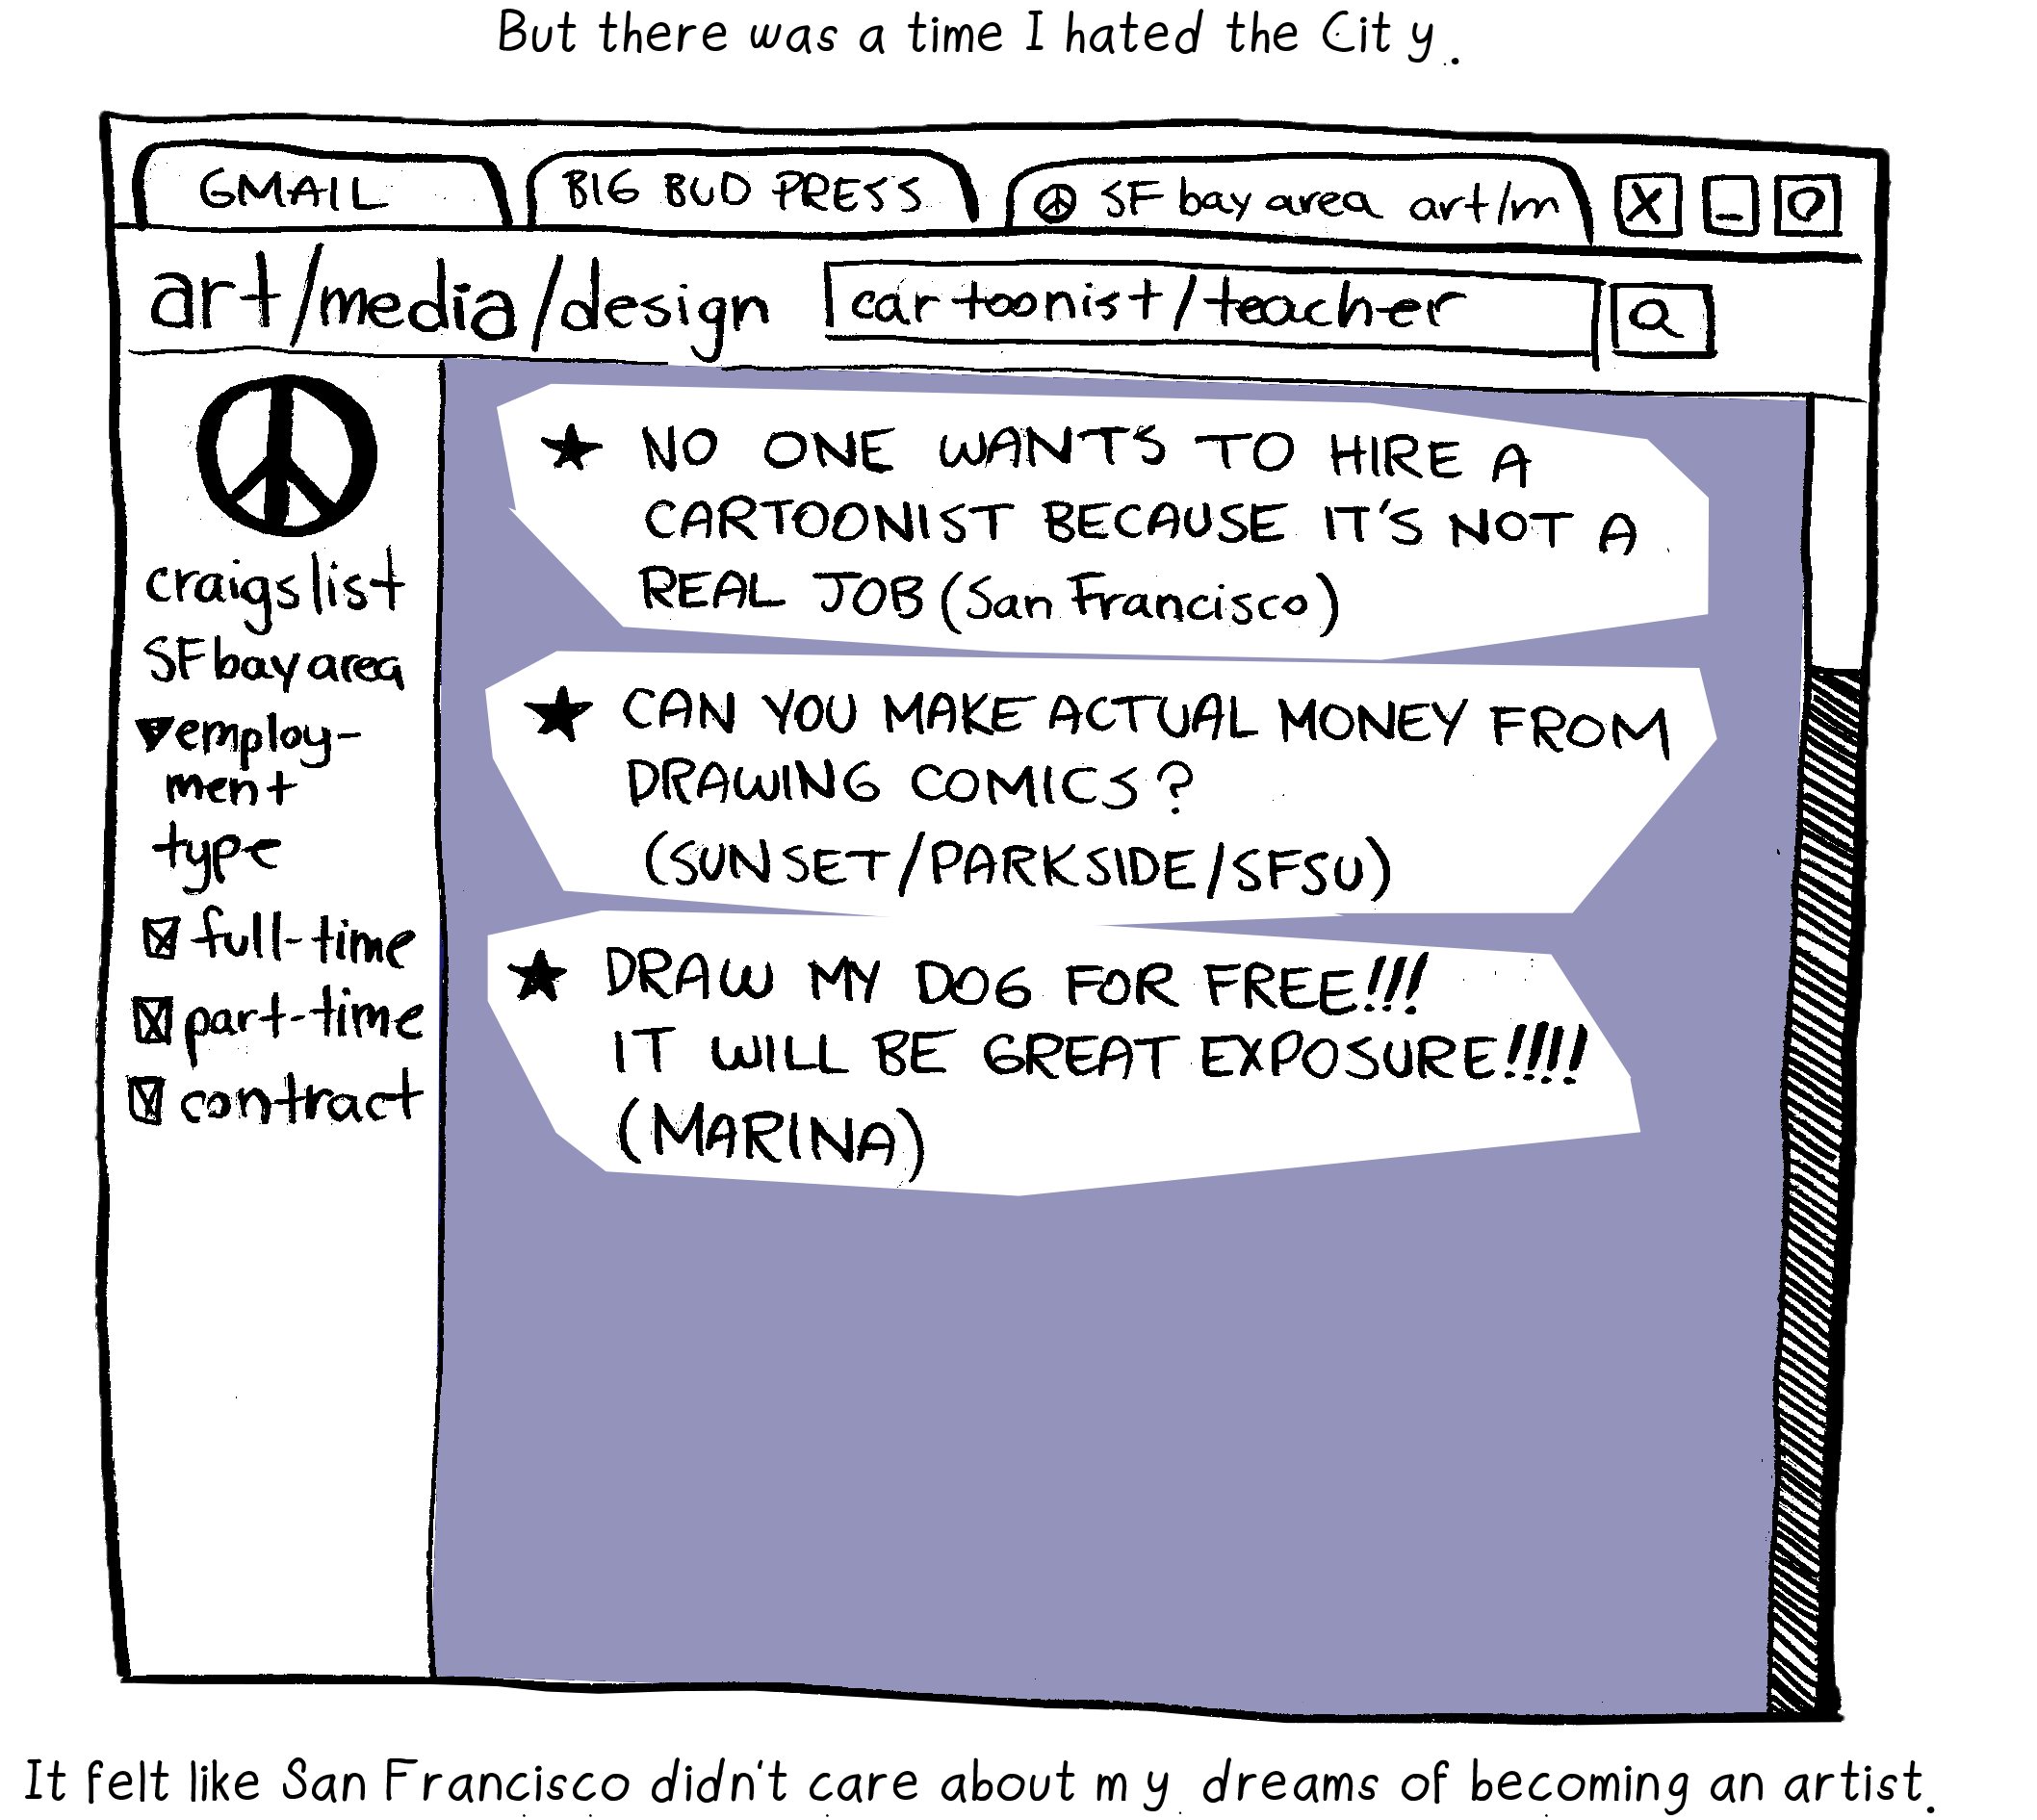 But there was a time I hated the City.
GMAIL
BIG BUD PRESS
SF bay area art/m
art/media/design
cartoonist/teacher
craigslist
SF bay area
employ-
ment
type
full-time
part-time
contract
★ NO ONE WANTS TO HIRE A
CARTOONIST BECAUSE IT'S NOT A
REAL JOB (San Francisco)
★ CAN YOU MAKE ACTUAL MONEY FROM
DRAWING COMICS?
(SUNSET/PARKSIDE/SFSU)
★ DRAW MY DOG FOR FREE!!!
IT WILL BE GREAT EXPOSURE!!!!
(MARINA)
It felt like San Francisco didn't care about my dreams of becoming an artist.